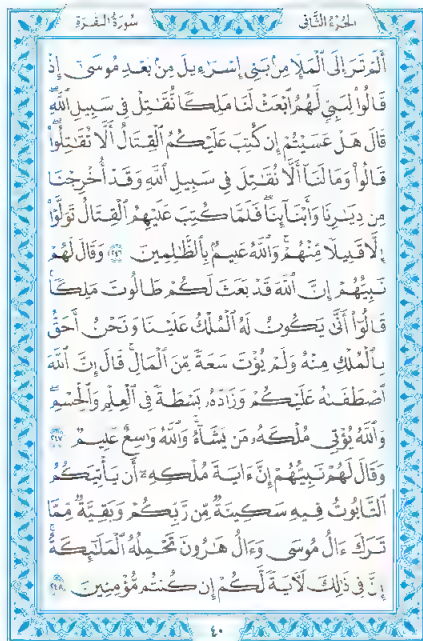 سُورَةُ الْبَقَرَةِ
الجُزْءُ الثَّانِي
أَلَمْ تَرَ إِلَى ٱلْمَلَإِ مِنۢ بَنِىٓ إِسْرَٰٓءِيلَ مِنۢ بَعْدِ مُوسَىٰٓ إِذْ
قَالُوا۟ لِنَبِىٍّ لَّهُمُ ٱبْعَثْ لَنَا مَلِكًا نُّقَٰتِلْ فِى سَبِيلِ ٱللَّهِ ۖ
قَالَ هَلْ عَسَيْتُمْ إِن كُتِبَ عَلَيْكُمُ ٱلْقِتَالُ أَلَّا تُقَٰتِلُوا۟ ۖ
قَالُوا۟ وَمَا لَنَآ أَلَّا نُقَٰتِلَ فِى سَبِيلِ ٱللَّهِ وَقَدْ أُخْرِجْنَا
مِن دِيَٰرِنَا وَأَبْنَآئِنَا ۖ فَلَمَّا كُتِبَ عَلَيْهِمُ ٱلْقِتَالُ تَوَلَّوْا۟
إِلَّا قَلِيلًا مِّنْهُمْ ۗ وَٱللَّهُ عَلِيمٌۢ بِٱلظَّٰلِمِينَ ٢٤٦ وَقَالَ لَهُمْ
نَبِيُّهُمْ إِنَّ ٱللَّهَ قَدْ بَعَثَ لَكُمْ طَالُوتَ مَلِكًا ۚ
قَالُوٓا۟ أَنَّىٰ يَكُونُ لَهُ ٱلْمُلْكُ عَلَيْنَا وَنَحْنُ أَحَقُّ
بِٱلْمُلْكِ مِنْهُ وَلَمْ يُؤْتَ سَعَةً مِّنَ ٱلْمَالِ ۚ قَالَ إِنَّ ٱللَّهَ
ٱصْطَفَىٰهُ عَلَيْكُمْ وَزَادَهُۥ بَسْطَةً فِى ٱلْعِلْمِ وَٱلْجِسْمِ ۖ
وَٱللَّهُ يُؤْتِى مُلْكَهُۥ مَن يَشَآءُ ۚ وَٱللَّهُ وَٰسِعٌ عَلِيمٌ ٢٤٧
وَقَالَ لَهُمْ نَبِيُّهُمْ إِنَّ ءَايَةَ مُلْكِهِۦٓ أَن يَأْتِيَكُمُ
ٱلتَّابُوتُ فِيهِ سَكِينَةٌ مِّن رَّبِّكُمْ وَبَقِيَّةٌ مِّمَّا
تَرَكَ ءَالُ مُوسَىٰ وَءَالُ هَٰرُونَ تَحْمِلُهُ ٱلْمَلَٰٓئِكَةُ ۚ
إِنَّ فِى ذَٰلِكَ لَءَايَةً لَّكُمْ إِن كُنتُم مُّؤْمِنِينَ ٢٤٨
٤٠